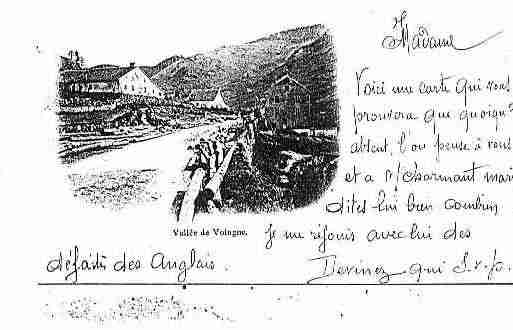 Madame
Voici une carte qui vous
prouvera que quoiqu'
absent, l'on pense à vous
et a V/ charmant mari
dites lui bien combien
Vallée de Vologne.
je me réjouis avec lui des
défaites des Anglais.
Devinez qui S.v.p.